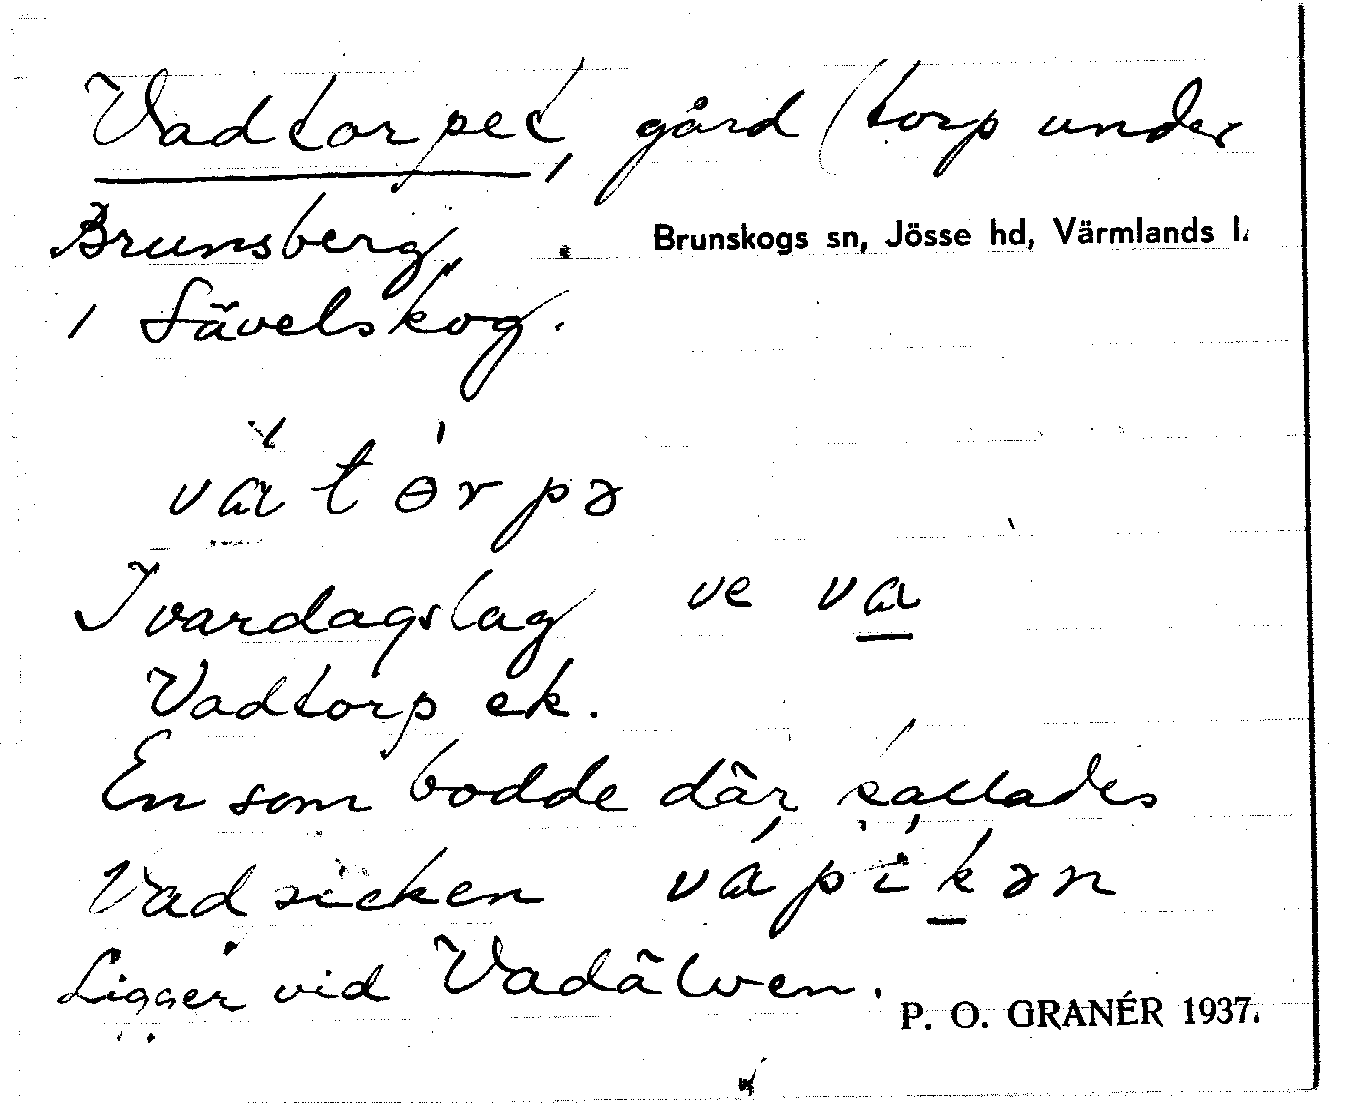 Vadtorpet, gård (torp under
Brunsberg, Brunskogs sn, Jösse hd, Värmlands l.
i Sävelskog.
vátórpə
I vardagslag ve va
Vadtorp ek.
En som bodde där kallades
Vad vápíkən
Ligger vid Vadälven.
P. O. GRANÉR 1937.